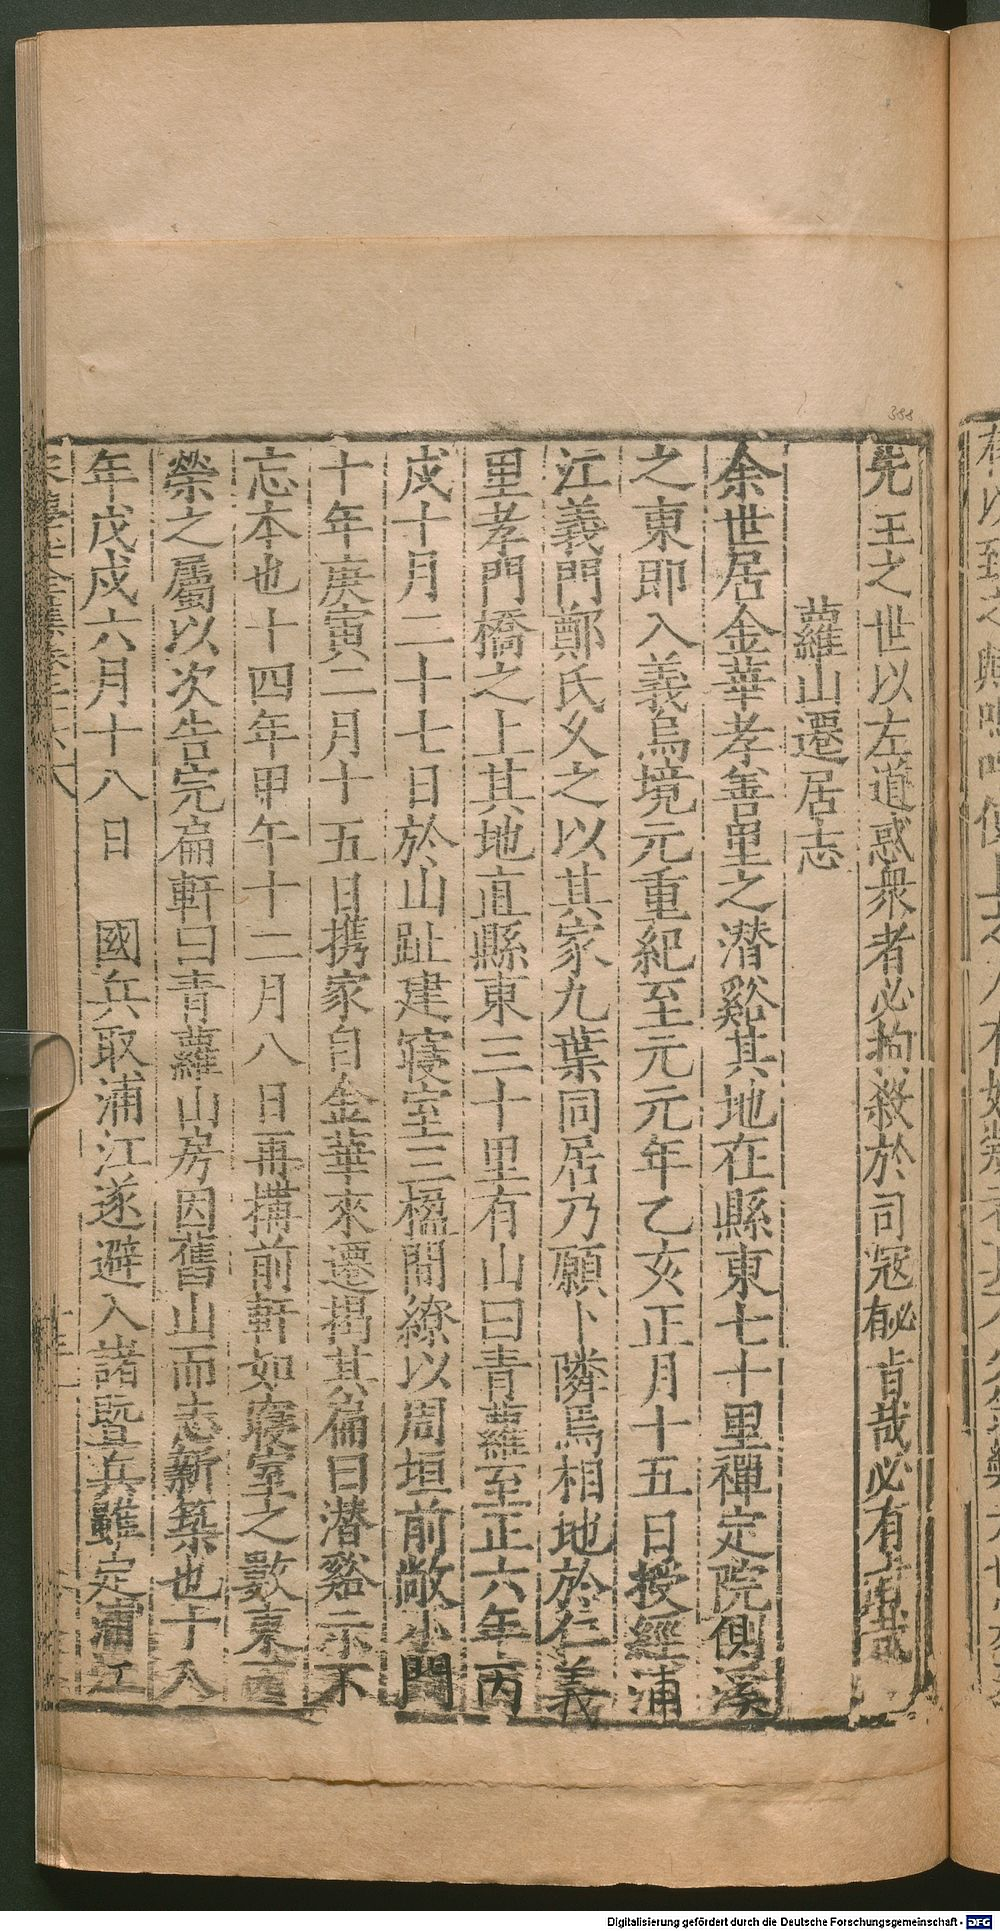 先王之世以左道惑衆者必拘殺於司寇有旨哉必有旨哉
蘿山遷居志
余世居金華孝善里之潜谿其地在縣東七十里禪定院側溪
之東即入義烏境元重紀至元元年乙亥正月十五日授經浦
江義門鄭氏久之以其家九葉同居乃願卜隣焉相地於仁義
里孝門橋之上其地直縣東三十里有山曰青蘿至正六年丙
戌十月二十七日於山趾建寢室三楹間繚以周垣前敞小門
十年庚寅二月十五日携家自金華來遷揭其扁曰潜谿示不
忘本也十四年甲午十二月八日再搆前軒如寢室之數東西
榮之屬以次告完扁軒曰青蘿山房因舊山而志新築也十八
年戊戌六月十八日 國兵取浦江遂避入諸暨兵雖定浦江
388
Digitalisierung gefördert durch die Deutsche Forschungsgemeinschaft - DFG